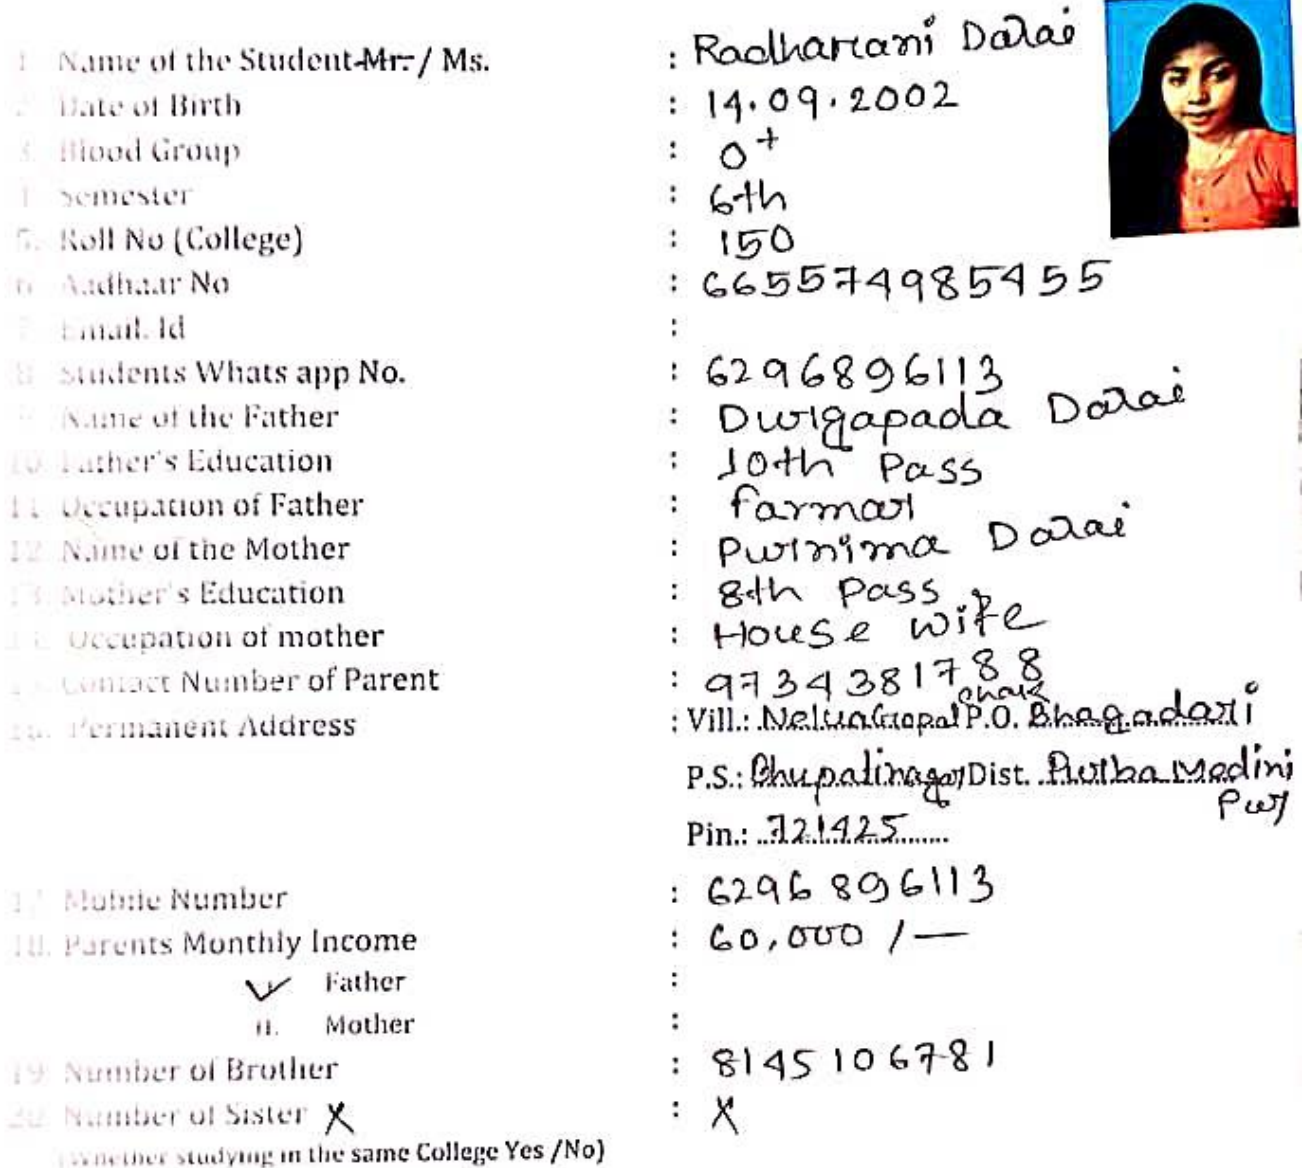 1. Name of the Student Mr. / Ms. : Radharani Dalai
2. Date of Birth : 14.09.2002
3. Blood Group : O+
4. Semester : 6th
5. Roll No (College) : 150
6. Aadhaar No : 665574985455
7. Email. Id :
8. Students Whats app No. : 6296896113
9. Name of the Father : Durgapada Dalai
10. Father's Education : 10th Pass
11. Occupation of Father : farmar
12. Name of the Mother : Purnima Dalai
13. Mother's Education : 8th Pass
14. Occupation of mother : House wife
15. Contact Number of Parent : 9734381788
16. Permanent Address : Vill.: NeluaGopal chak P.O. Bhagadari
P.S.: Bhupatinagar Dist. Purba Medini
Pur
Pin.: 721425
17. Mobile Number : 6296896113
18. Parents Monthly Income : 60,000 /—
Father :
ii. Mother :
19. Number of Brother : 8145106781
20. Number of Sister X : X
(Whether studying in the same College Yes /No)